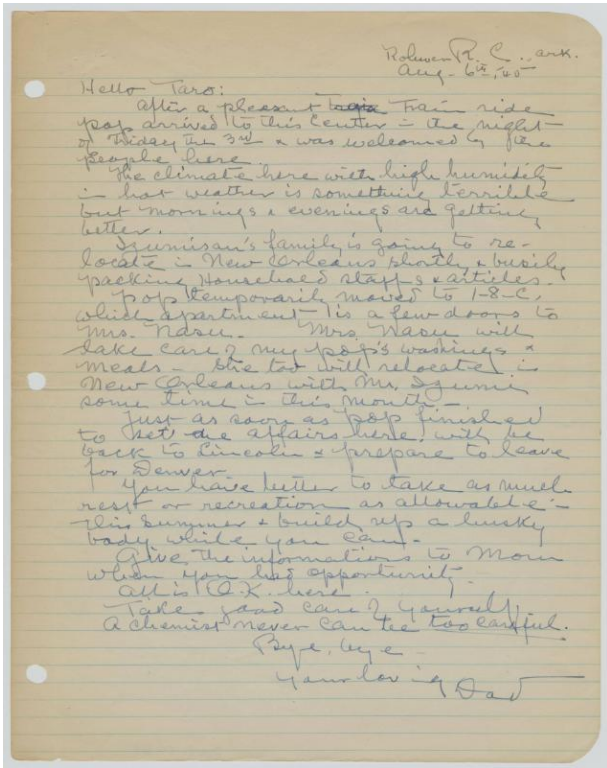 Rohwer R. C., Ark.
Aug. 6th, '45
Hello Taro:
After a pleasant train ride
pop arrived to this Center in the night
of Friday the 3rd & was welcomed by the
people here.
The climate here with high humidity
in hot weather is something terrible
but mornings & evenings are getting
better.
Izumisan's family is going to re-
locate in New Orleans shortly & busily
packing Household staffs & articles.
Pop temporarily moved to 1-8-C,
which apartment is a few doors to
Mrs. Nasu. Mrs. Nasu will
take care of my pop's washings &
meals - She too will relocate in
New Orleans with Mr. Izumi
some time in this month -
Just as soon as pop finished
to set the affairs here, will be
back to Lincoln & prepare to leave
for Denver.
You have better to take as much
rest or recreation as allowable -
this Summer & build up a husky
body while you can -
Give the informations to Mom
when you had opportunity.
All is O.K. here.
Take good care of yourself.
A chemist never can be too careful.
Bye, bye -
Your loving Dad